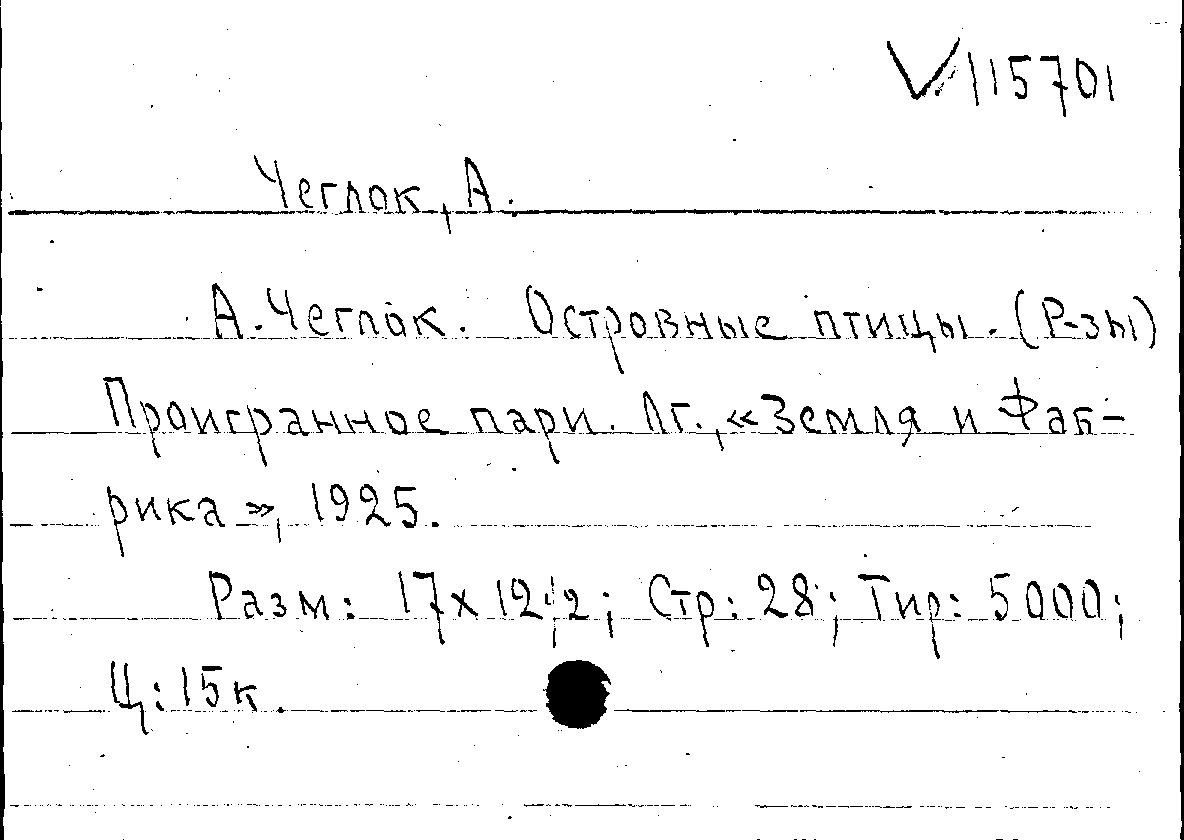 V 115701
Чеглок, А.
А. Чеглок. Островные птицы. (Р-зы)
Проигранное пари. Лг., «Земля и Фаб-
рика», 1925.
Разм: 17х12,2; Стр: 28; Тир: 5000;
Ц: 15к.